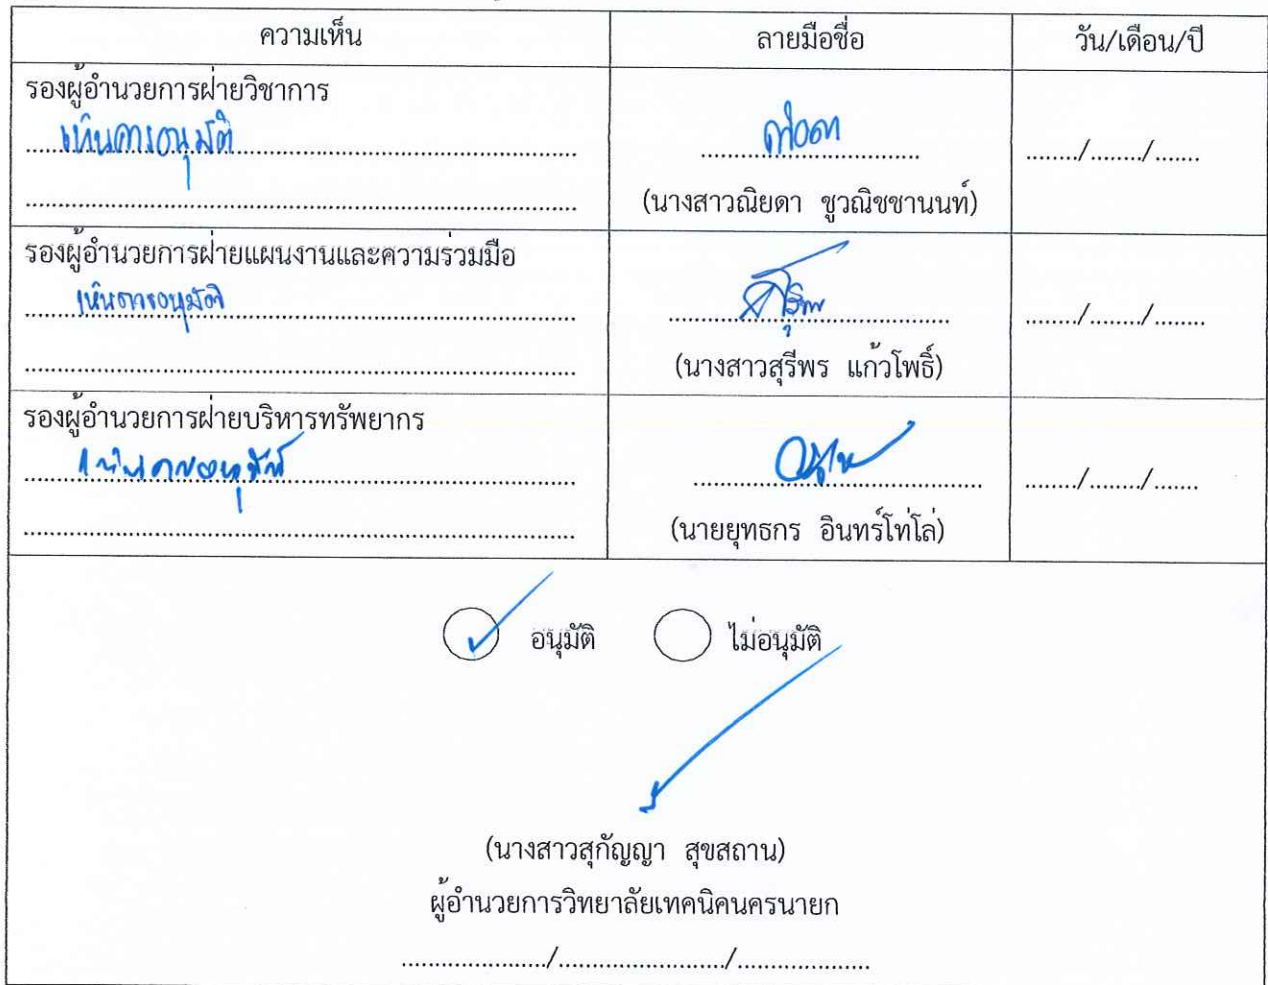 ความเห็น ลายมือชื่อ วัน/เดือน/ปี
รองผู้อำนวยการฝ่ายวิชาการ
เห็นควรอนุมัติ
......../......../.......
(นางสาวณิยดา ชูวณิชชานนท์)
รองผู้อำนวยการฝ่ายแผนงานและความร่วมมือ
เห็นควรอนุมัติ
......../......../.......
(นางสาวสุรีพร แก้วโพธิ์)
รองผู้อำนวยการฝ่ายบริหารทรัพยากร
เห็นควรอนุมัติ
......../......../.......
(นายยุทธกร อินทร์โท่โล่)
อนุมัติ ไม่อนุมัติ
(นางสาวสุกัญญา สุขสถาน)
ผู้อำนวยการวิทยาลัยเทคนิคนครนายก
....................../........................./....................